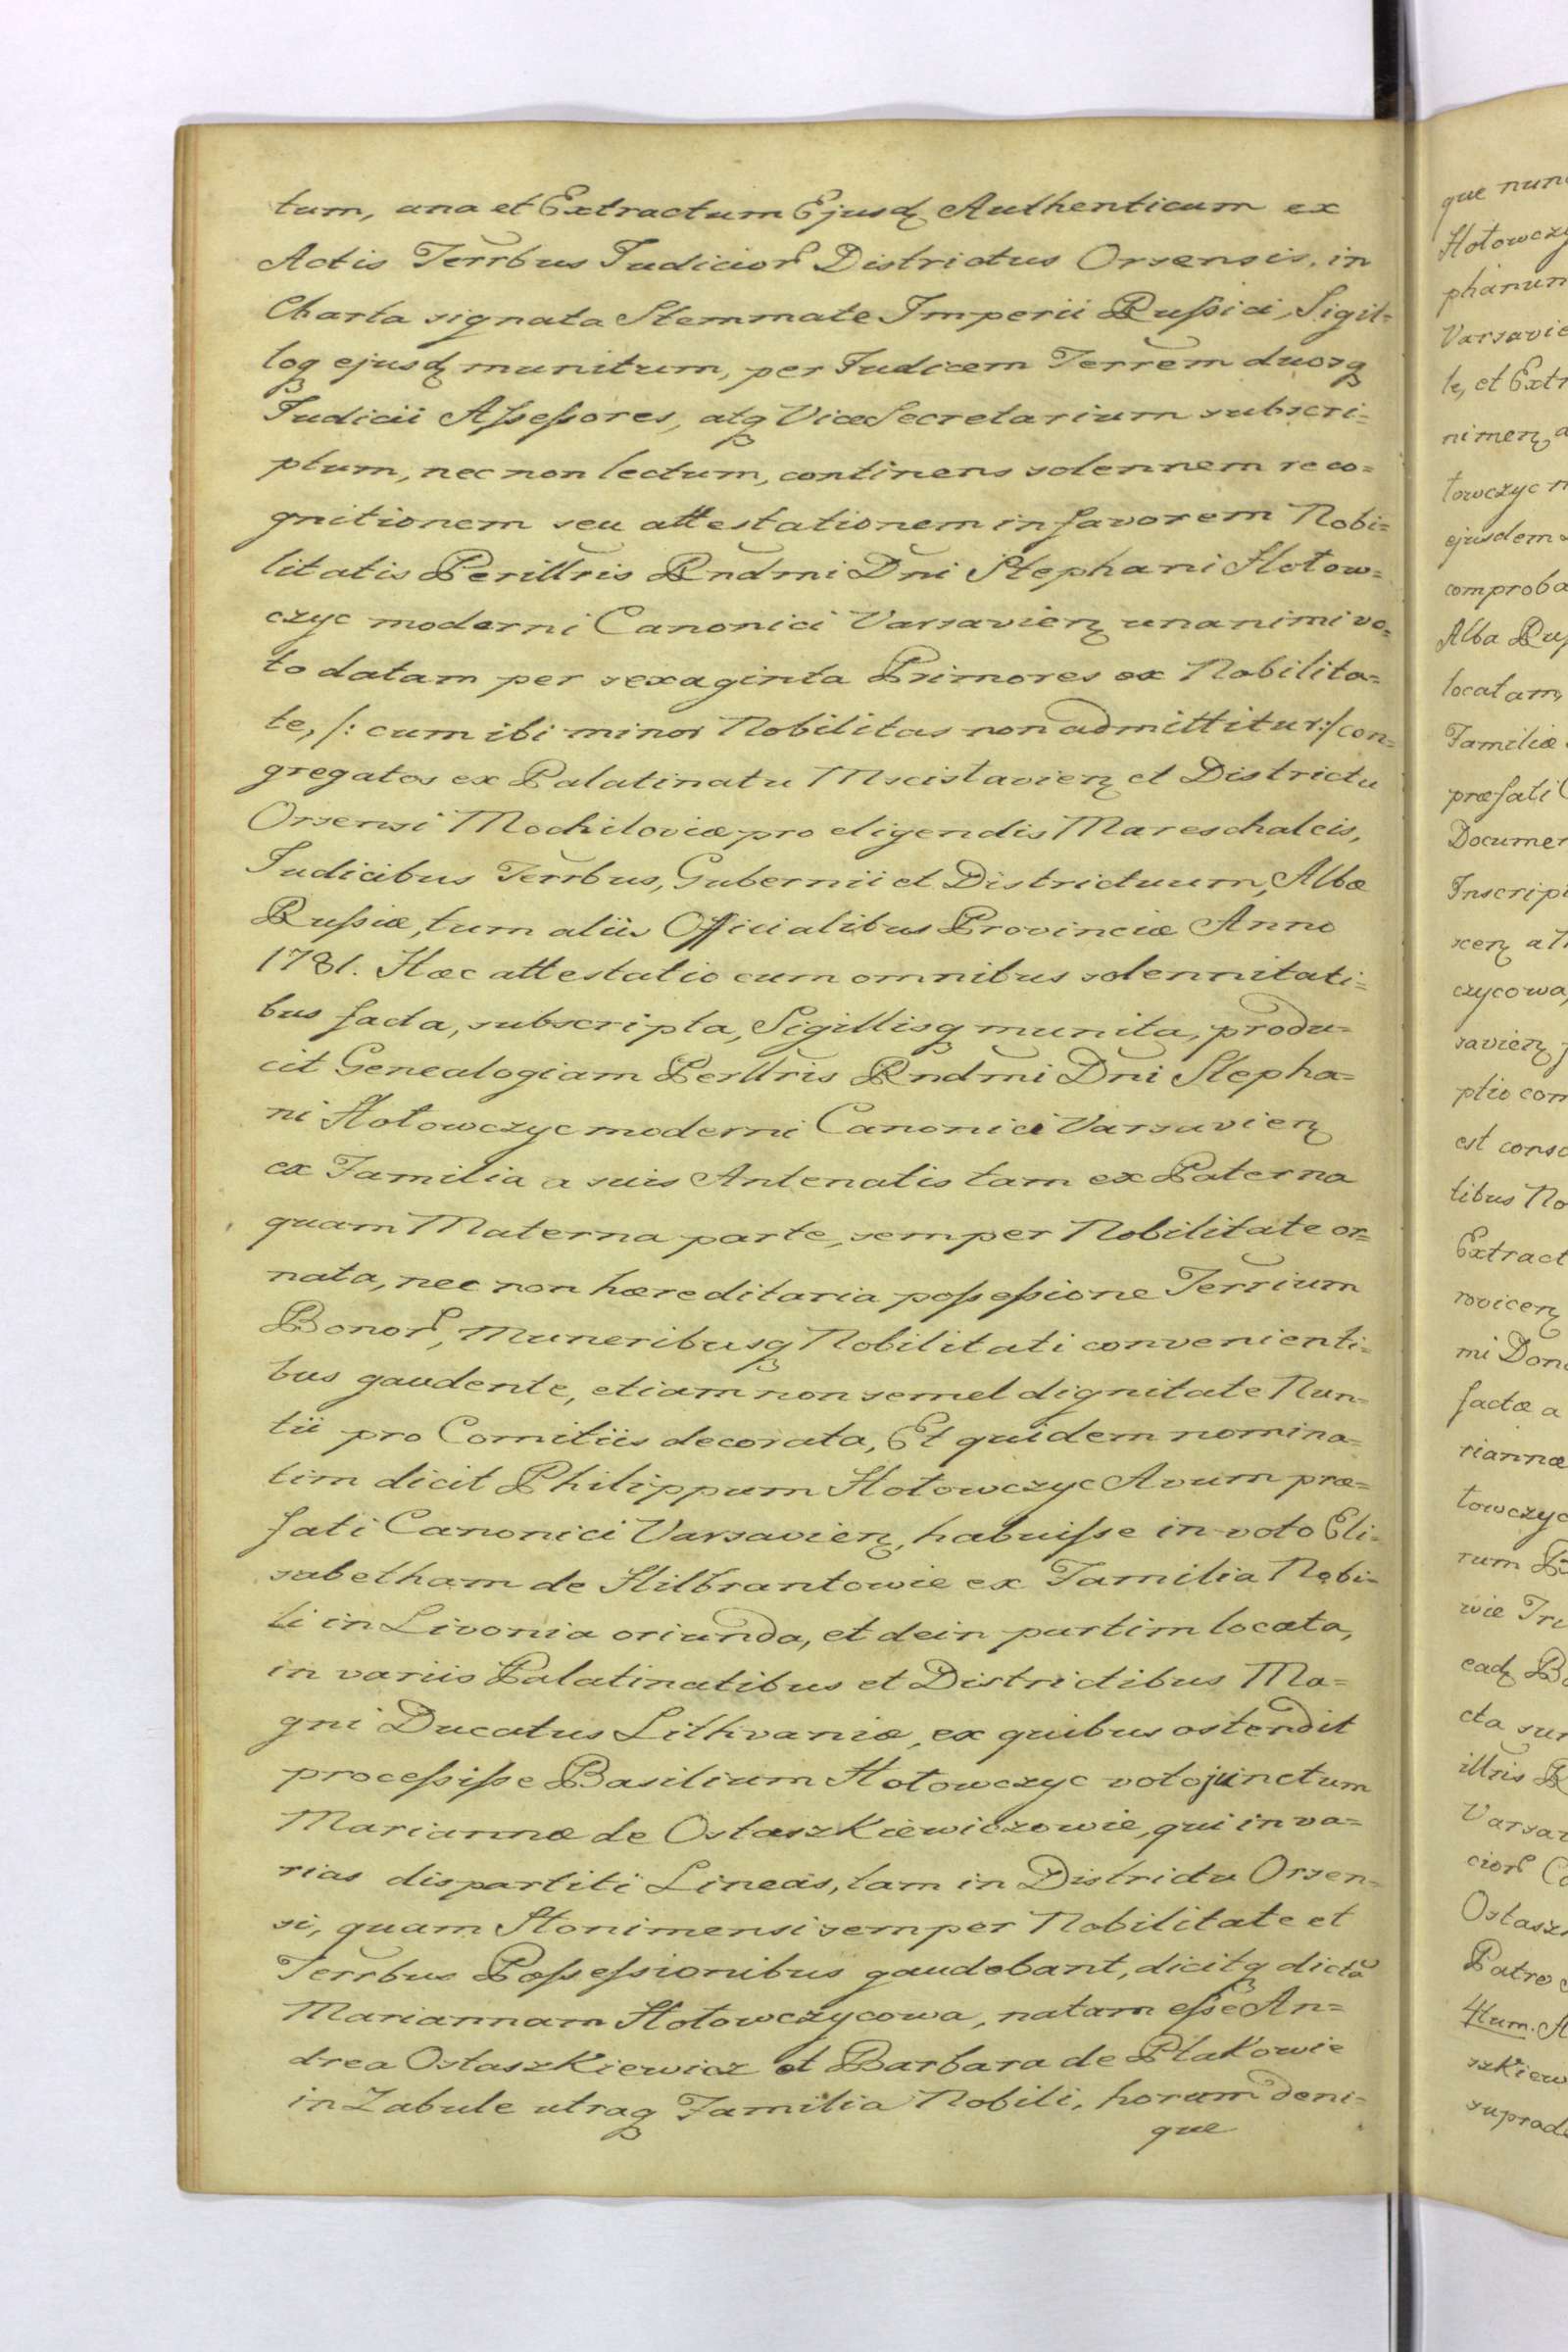 tum, una et Extractum Ejusdꝫ Authenticum ex
Actis Terrbus Judicior̃ Districtus Orsensis, in
Charta signata Stemmate Imperii Rußici, Sigil=
loq ejusdꝫ munitum, per Judicem Terrem duosq
Judicii Aßeßores, atq ViceSecretarium subscri=
ptum, nec non lectum, continens solennem reco=
gnitionem seu attestationem in favorem Nobi=
litatis Perilltris Rndmi Dni Stephani Hołow=
czyc moderni Canonici Varsavienꝫ unanimi vo=
to datam per sexaginta Primores ex Nobilita=
te, /: cum ibi minor Nobilitas non admittitur :/ con=
gregatos ex Palatinatu Mscislavienꝫ et Districtu
Orsensi Mochiloviæ pro eligendis Mareschalcis,
Judicibus Terrbus, Gubernii et Districtuum, Albæ
Rußiæ, tum aliis Officialibus Provinciæ Anno
1781. Hæc attestatio cum omnibus solennitati=
bus facta, subscripta, Sigillisq munita, produ=
cit Genealogiam Perlltris Rndmi Dni Stepha=
ni Hołowczyc moderni Canonici Varsavienꝫ
ex Familia a suis Antenatis tam ex Paterna
quam Materna parte, semper Nobilitate or=
nata, nec non hæreditaria poßeßione Terrium
Bonor̃, Muneribusq Nobilitati convenienti=
bus gaudente, etiam non semel dignitate Nun=
tii pro Comitiis decorata, Et quidem nomina=
tim dicit Philippum Hołowczyc Avum præ=
fati Canonici Varsavienꝫ, habuiße in voto Eli=
sabetham de Hilbrantowie ex Familia Nobi=
li in Livonia oriunda, et dein partim locata,
in variis Palatinatibus et Districtibus Ma=
gni Ducatus Lithvaniæ, ex quibus ostendit
proceßiße Basilium Hołowczyc voto junctum
Mariannæ de Ostaszkiewiczowie, qui in va=
rias dispartiti Lineas, tam in Districtu Orsen=
si, quam Słonimensi semper Nobilitate et
Terrbus Poßeßionibus gaudebant, dicitq dictã
Mariannam Hołowczycowa, natam eße An=
drea Ostaszkiewicz et Barbara de Ptakowie
in Zabule utraq Familia Nobili, horum deni=
que